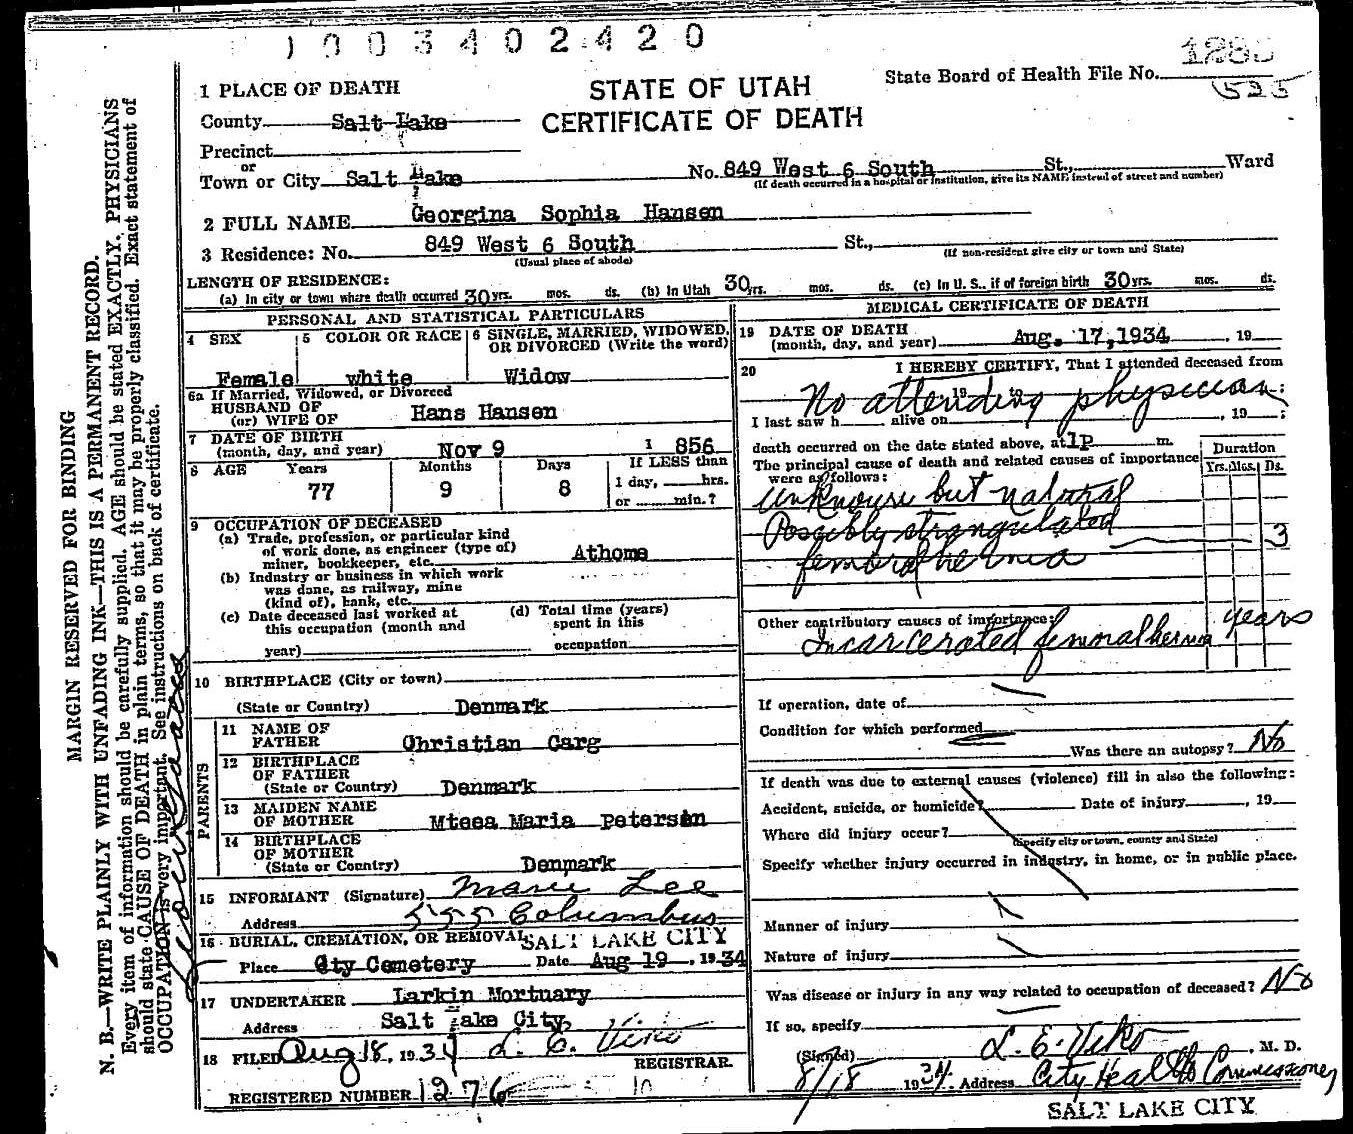 1003402420
STATE OF UTAH
CERTIFICATE OF DEATH
State Board of Health File No.
525
1 PLACE OF DEATH
County Salt Lake
Precinct
or
Town or City Salt Lake
No. 849 West 6 South St., Ward
(If death occurred in a hospital or institution, give its NAME instead of street and number)
2 FULL NAME Georgina Sophia Hansen
3 Residence: No. 849 West 6 South St.,
(Usual place of abode) (If non-resident give city or town and State)
LENGTH OF RESIDENCE:
(a) In city or town where death occurred 30 yrs. mos. ds. (b) In Utah 30 yrs. mos. ds. (c) In U. S., if of foreign birth 30 yrs. mos. ds.
PERSONAL AND STATISTICAL PARTICULARS
4 SEX
Female
5 COLOR OR RACE
white
6 SINGLE, MARRIED, WIDOWED, OR DIVORCED (Write the word)
Widow
6a If Married, Widowed, or Divorced
HUSBAND OF
(or) WIFE OF Hans Hansen
7 DATE OF BIRTH
(month, day, and year) Nov 9 1 856
8 AGE Years Months Days If LESS than
77 9 8 1 day, hrs.
or min.?
9 OCCUPATION OF DECEASED
(a) Trade, profession, or particular kind
of work done, as engineer (type of)
miner, bookkeeper, etc. Athome
(b) Industry or business in which work
was done, as railway, mine
(kind of), bank, etc.
(c) Date deceased last worked at
this occupation (month and
year)
(d) Total time (years)
spent in this
occupation
10 BIRTHPLACE (City or town)
(State or Country) Denmark
PARENTS
11 NAME OF
FATHER Christian Carg
12 BIRTHPLACE
OF FATHER
(State or Country) Denmark
13 MAIDEN NAME
OF MOTHER Mteea Maria Petersen
14 BIRTHPLACE
OF MOTHER
(State or Country) Denmark
15 INFORMANT (Signature) Marie Lee
Address 555 Columbus
16 BURIAL, CREMATION, OR REMOVAL SALT LAKE CITY
Place Cty Cemetery Date Aug 19, 1934
17 UNDERTAKER Larkin Mortuary
Address Salt Lake City
18 FILED Aug 18, 1934 L. E. Viko
REGISTRAR.
REGISTERED NUMBER 1276
MEDICAL CERTIFICATE OF DEATH
19 DATE OF DEATH
(month, day, and year) Aug. 17, 1934, 19
20 I HEREBY CERTIFY, That I attended deceased from
19 to
No attending physician
I last saw h alive on , 19 ;
death occurred on the date stated above, at 1p m.
The principal cause of death and related causes of importance
were as follows:
Duration
Yrs. Mos. Ds.
Unknown but natural
Possibly strangulated 3
femoral hernia
Other contributory causes of importance:
Incarcerated femoral hernia years
If operation, date of
Condition for which performed
Was there an autopsy? No
If death was due to external causes (violence) fill in also the following:
Accident, suicide, or homicide? Date of injury , 19
Where did injury occur?
(Specify city or town, county and State)
Specify whether injury occurred in industry, in home, or in public place.
Manner of injury
Nature of injury
Was disease or injury in any way related to occupation of deceased? No
If so, specify
(Signed) L. E. Viko, M. D.
8/18 1934 Address City Health Commissioner
SALT LAKE CITY
MARGIN RESERVED FOR BINDING
N. B.—WRITE PLAINLY WITH UNFADING INK—THIS IS A PERMANENT RECORD.
Every item of information should be carefully supplied. AGE should be stated EXACTLY. PHYSICIANS
should state CAUSE OF DEATH in plain terms, so that it may be properly classified. Exact statement of
OCCUPATION is very important. See instructions on back of certificate.